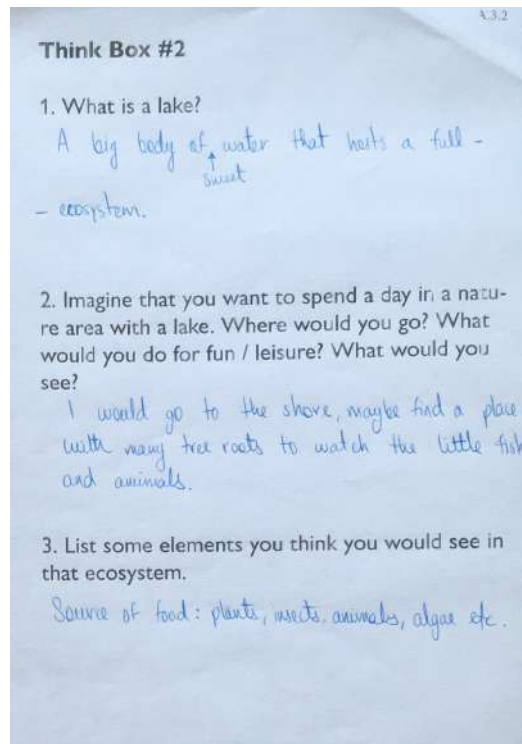 A.3.2
Think Box #2
1. What is a lake?
A big body of water that hosts a full -
sweet
- ecosystem.
2. Imagine that you want to spend a day in a natu-
re area with a lake. Where would you go? What
would you do for fun / leisure? What would you
see?
I would go to the shore, maybe find a place
with many tree roots to watch the little fish
and animals.
3. List some elements you think you would see in
that ecosystem.
Source of food: plants, insects, animals, algae etc.